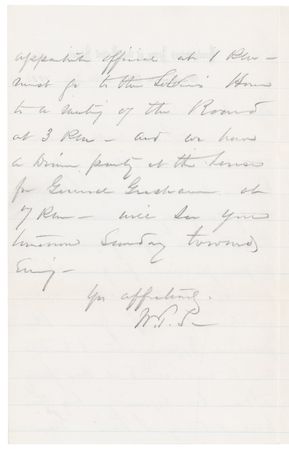 official at 1 P.M. —
must go to the Soldiers Home
to a meeting of the Board
at 3 P.M. — and we have
a Dinner party at the house
for General Gresham at
7 P.M. — will see you
tomorrow Sunday towards
Evng —
Yrs affectionately.